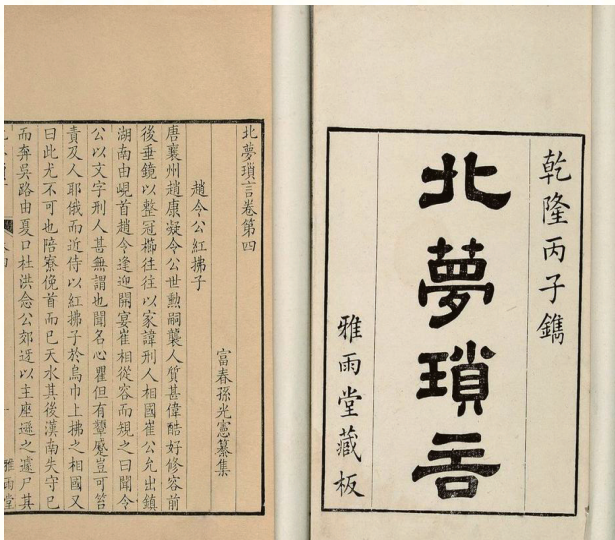 乾隆丙子鐫
北夢瑣言
雅雨堂藏板
北夢瑣言卷第四
富春孫光憲纂集
趙令公紅拂子
唐襄州趙康凝令公世勲嗣襲人質甚偉酷好修容前
後垂鏡以整冠櫛往往以家諱刑人相國崔公允出鎮
湖南由峴首趙令逢迎開宴崔相從容而規之曰聞令
公以文字刑人甚無謂也聞名心瞿但有顰蹙豈可笞
責及人耶俄而近侍以紅拂子於烏巾上拂之相國又
曰此尤不可也陪寮俛首而已天水其後漢南失守已
而奔吳路由夏口杜洪念公郊迓以主座遜之遽尸其
雅雨堂